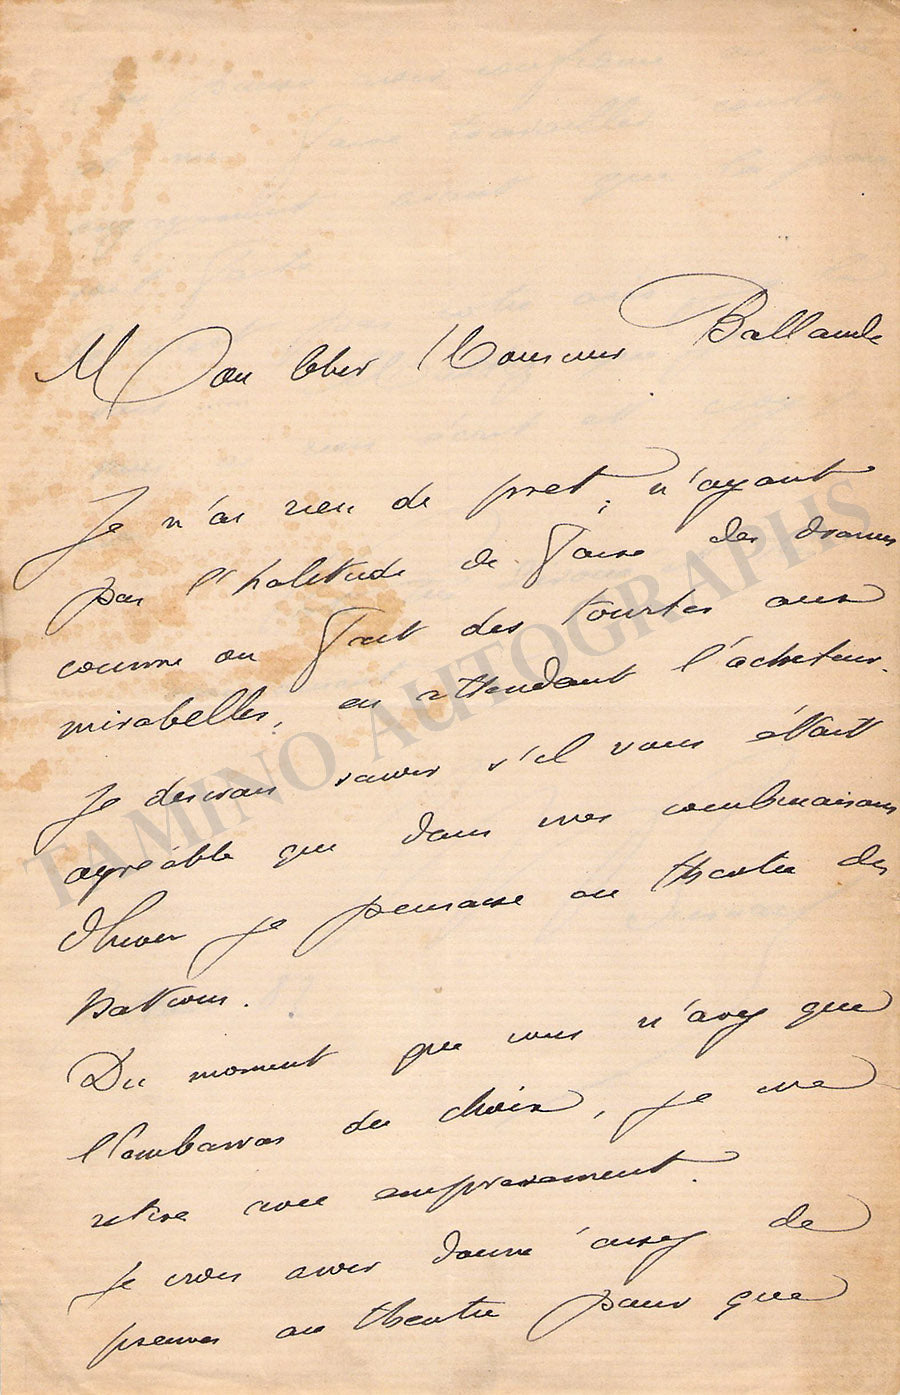 Mon cher Monsieur Ballande
Je n'ai rien de pret, n'ayant
pas l'habitude de faire des drames
comme on fait des tourtes aux
mirabelles, en attendant l'acheteur.
Je desirais savoir s'il vous était
agréable que dans mes combinaisons
d'hiver je pensasse au theatre des
nations.
Du moment que vous n'avez que
l'embarras du choix, je me
retire avec empressement.
Je crois avoir donné assez de
preuves au theatre pour que
TAMINO AUTOGRAPHS